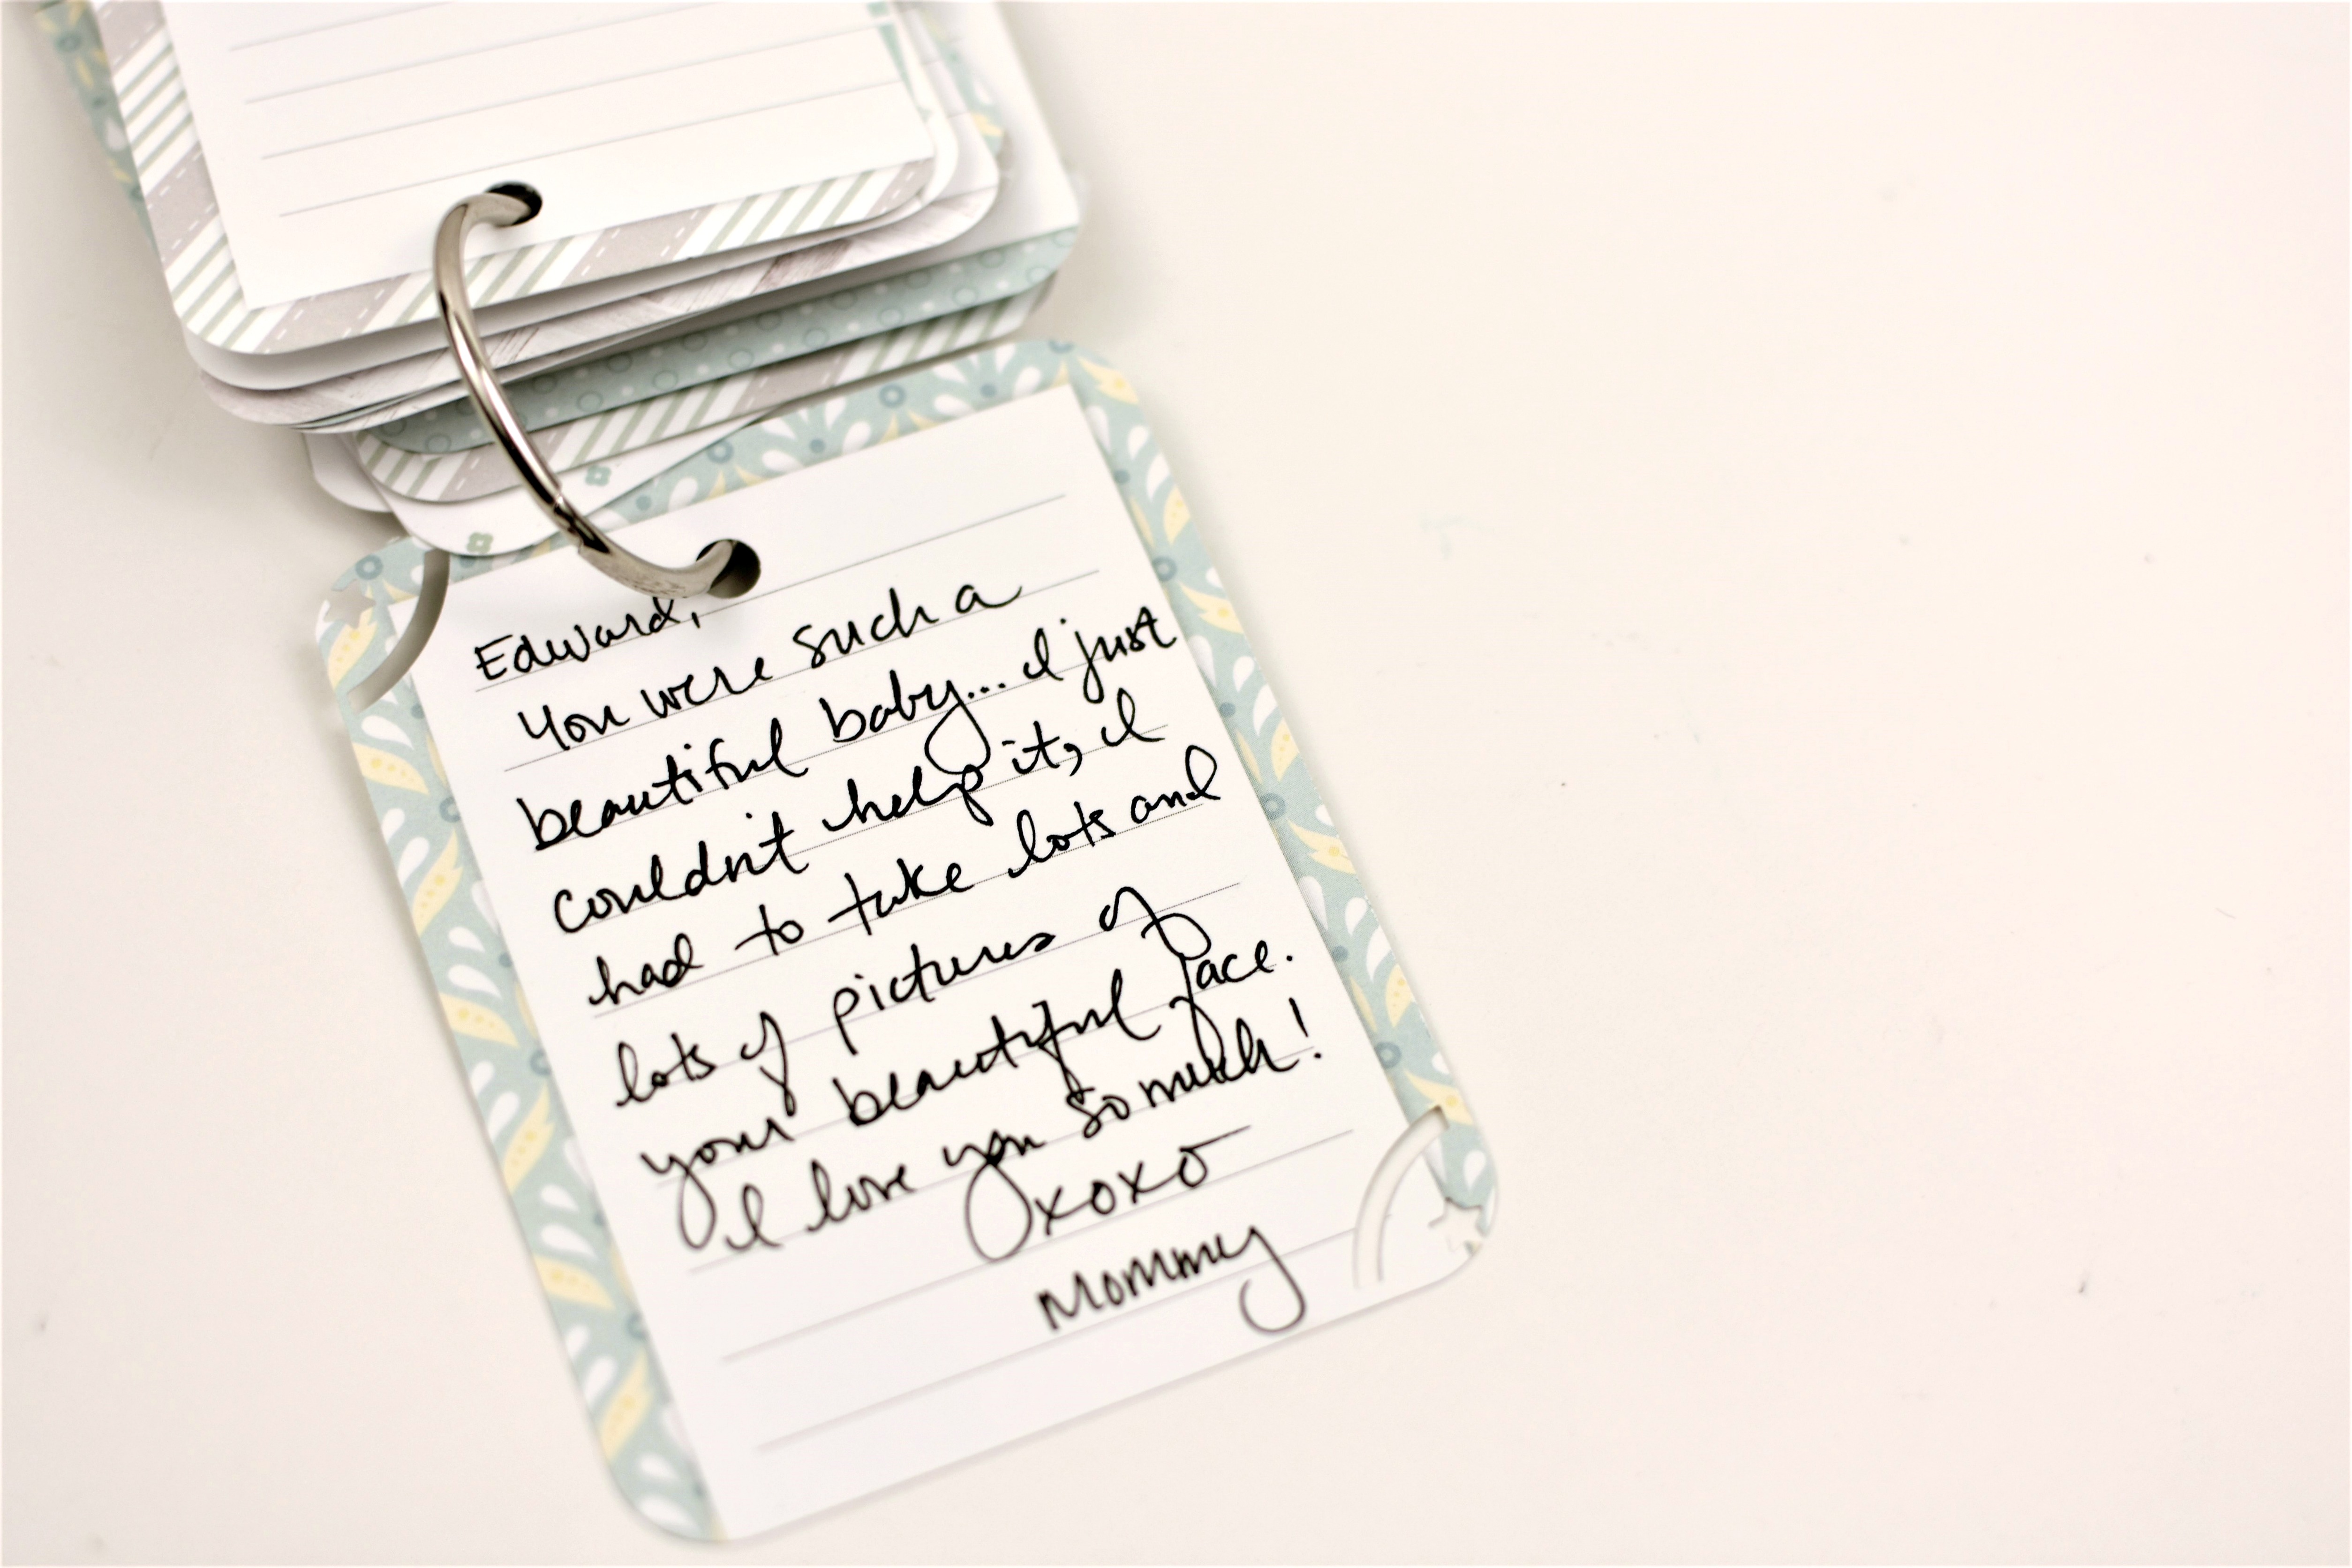 Edward,
You were such a
beautiful baby... I just
couldn't help it, I
had to take lots and
lots of pictures of
your beautiful face.
I love you so much!
xoxo
Mommy